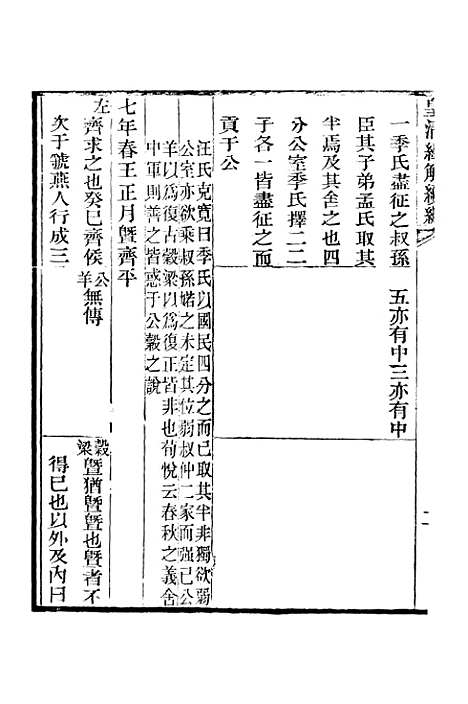 皇清經解續編
一季氏盡征之叔孫　五亦有中三亦有中
臣其子弟孟氏取其
半焉及其舍之也四
分公室季氏擇二二
子各一皆盡征之而
貢于公
汪氏克寬曰季氏以國民四分之而已取其半非獨欲弱
公室亦欲乘叔孫婼之未定其位弱叔仲二家而强已公
羊以爲復古穀梁以爲復正皆非也荀悅云春秋之義舍
中軍則善之皆惑于公穀之說
七年春王正月暨齊平
左齊求之也癸巳齊侯　公羊無傳　穀梁暨猶暨暨也暨者不
次于虢燕人行成三　得已也以外及內曰